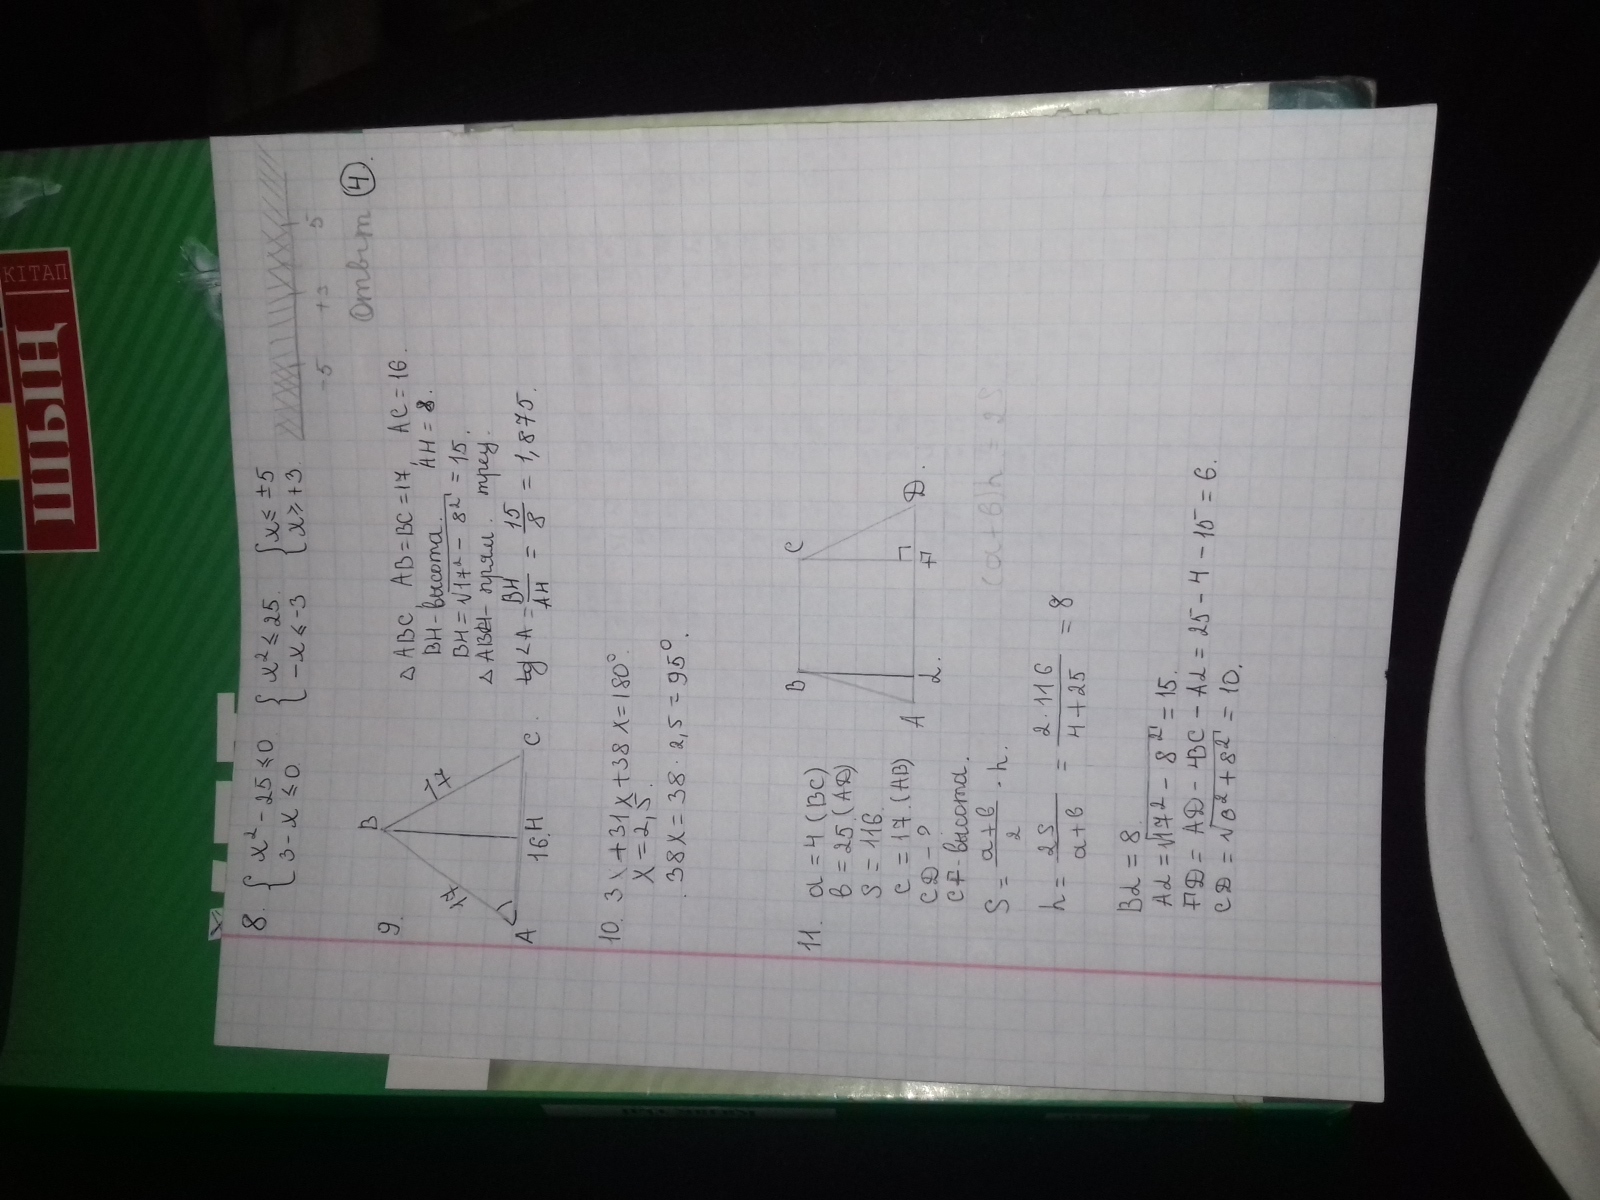 ШЫҢ
КІТАП
8. { x² - 25 ≤ 0 { x² ≤ 25. { x ≤ ±5
3 - x ≤ 0. - x ≤ -3 x ≥ +3.
-5 +3 5
Ответ (4).
9.
B
17
17
A
16.H
C.
△ ABC AB = BC = 17 AC = 16.
BH - высота. AH = 8.
BH = √17² - 8² = 15.
△ ABH - прям. треу.
tg∠A = BH/AH = 15/8 = 1,875.
10. 3x + 31x + 38x = 180°
x = 2,5.
38x = 38 · 2,5 = 95°.
11. a = 4 (BC)
b = 25. (AD)
S = 116.
c = 17. (AB)
CD - ?
CF - высота.
B
C
A
L.
F
D.
S = a+b/2 · h.
(a+b)h = 2S
h = 2S/a+b = 2·116/4+25 = 8
BL = 8.
AL = √17² - 8² = 15.
FD = AD - BC - AL = 25 - 4 - 15 = 6.
CD = √6² + 8² = 10.